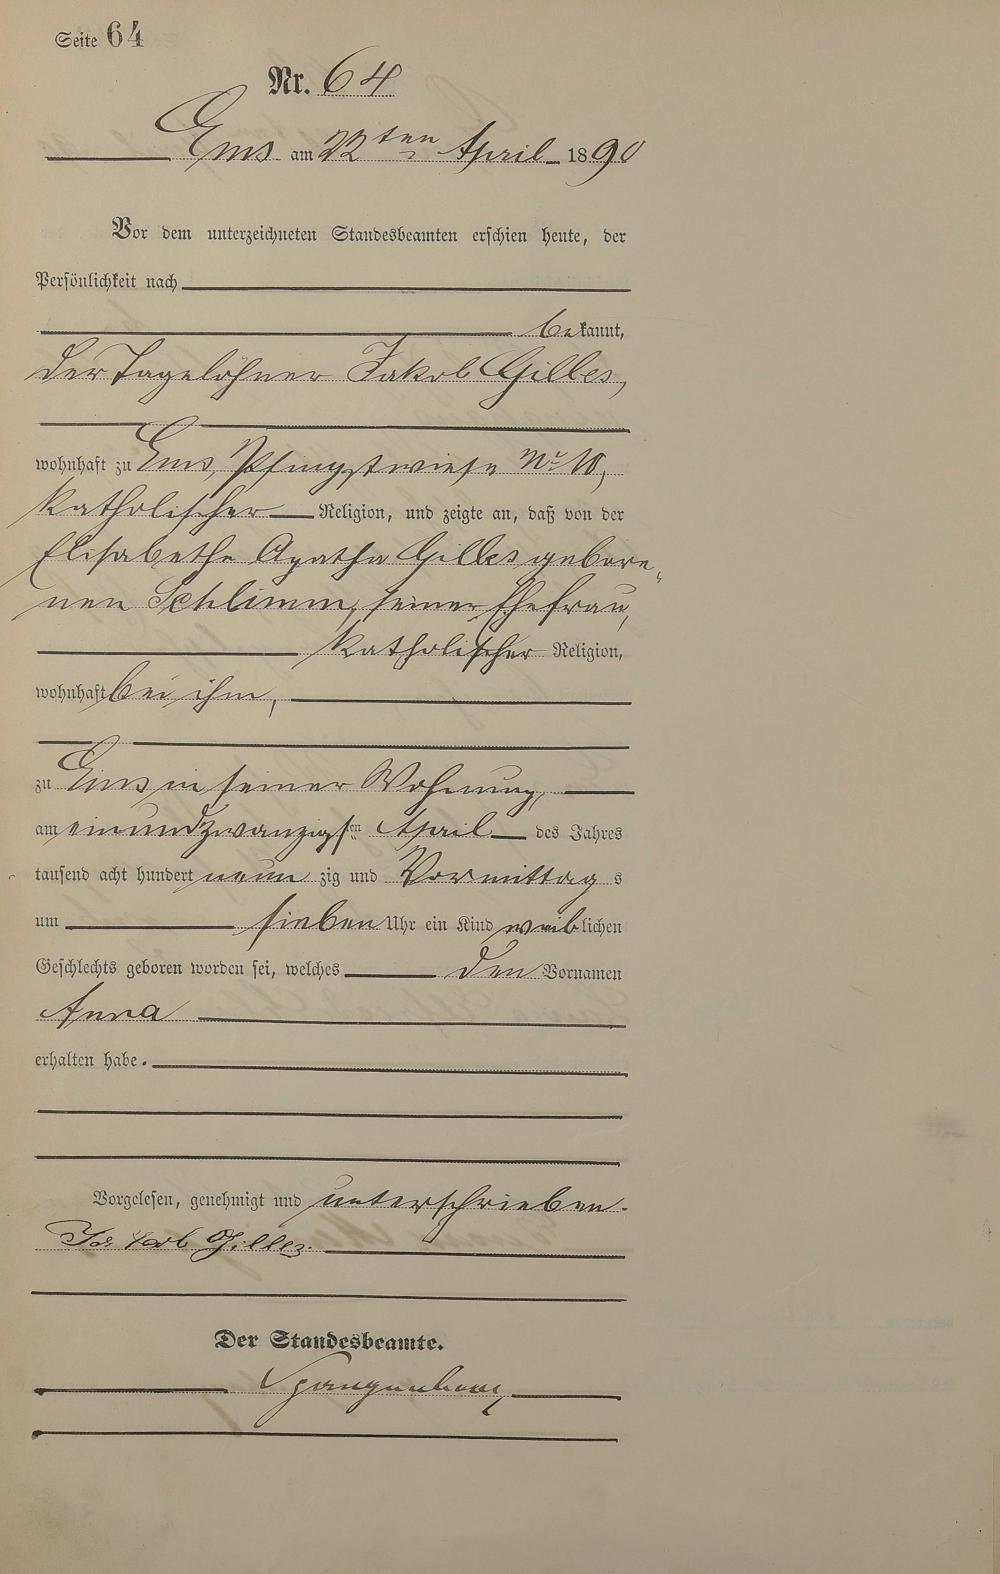 Seite 64
Nr. 64
Ems am 22ten April 1890
Vor dem unterzeichneten Standesbeamten erschien heute, der
Persönlichkeit nach
bekannt,
der Tagelöhner Jakob Gilles,
wohnhaft zu Ems, Pfingstwiese No 10,
katholischer Religion, und zeigte an, daß von der
Elisabethe Agatha Gilles gebore„
nen Schlimm, seiner Ehefrau,
katholischer Religion,
wohnhaft bei ihm,
zu Ems in seiner Wohnung,
am einundzwanzigsten April des Jahres
tausend acht hundert neunzig und Vormittags
um sieben Uhr ein Kind weiblichen
Geschlechts geboren worden sei, welches den Vornamen
Anna
erhalten habe.
Vorgelesen, genehmigt und unterschrieben.
Jakob Gilles.
Der Standesbeamte.
Spangenberg